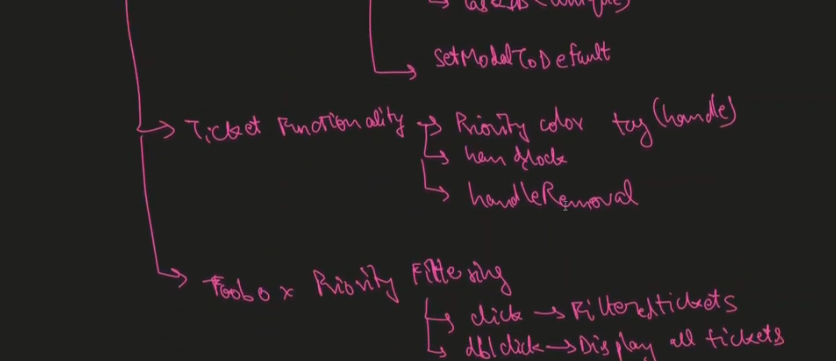 (unique)
setModalToDefault
Ticket Functionality → Priority color tag (handle)
handleRemoval
Toolbox Priority Filtering
click → Filtered tickets
dblclick → Display all tickets